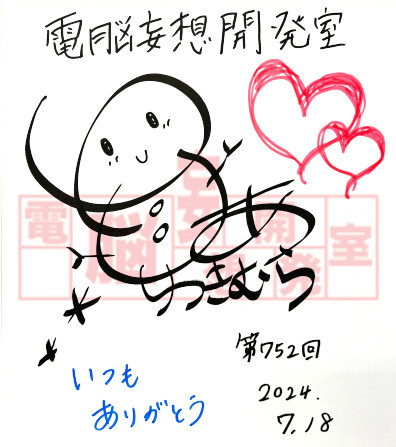 電脳妄想開発室
電脳妄想開発室
ゆきむら
第752回
2024.
7.18
いつも
ありがとう